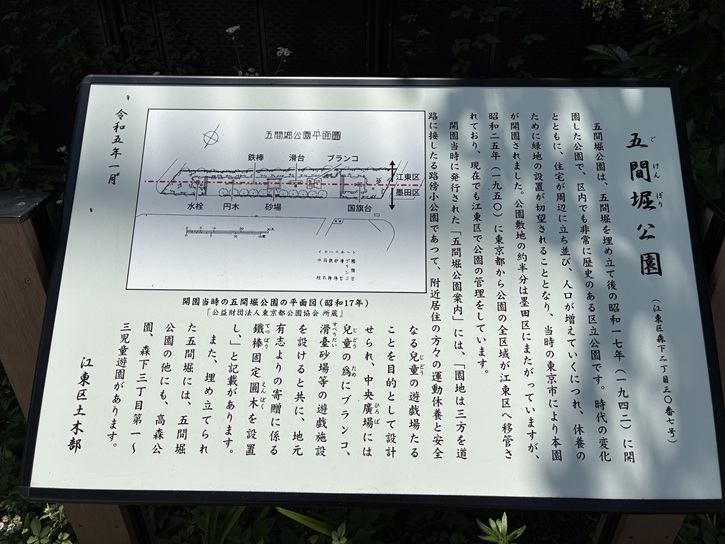 五間堀公園
ごけんぼり
(江東区森下二丁目三〇番七号)
五間堀公園は、五間堀を埋め立て後の昭和一七年(一九四二)に開
園した公園で、区内でも非常に歴史のある区立公園です。時代の変化
とともに、住宅が周辺に立ち並び、人口が増えていくにつれ、休養の
ために緑地の設置が切望されることとなり、当時の東京市により本園
が開園されました。公園敷地の約半分は墨田区にまたがっていますが、
昭和二五年(一九五〇)に東京都から公園の全区域が江東区へ移管さ
れており、現在でも江東区で公園の管理をしています。
開園当時に発行された「五間堀公園案内」には、「園地は三方を道
路に接したる路傍小公園であって、附近居住の方々の運動休養と安全
なる兒童の遊戯場たる
じどう
ことを目的として設計
せられ、中央廣場には
ひろば
兒童の為にブランコ、
じどう ため
滑臺砂場等の遊戯施設
すべりだい
を設けると共に、地元
有志よりの寄贈に係る
鐵棒固定圓木を設置
てつぼう えんぼく
し」と記載があります。
また、埋め立てられ
た五間堀には、五間堀
公園の他にも、高森公
園、森下三丁目第一〜
三児童遊園があります。
江東区土木部
令和五年一月
五間堀公園平面図
鉄棒
滑台
ブランコ
江東区
墨田区
水栓
円木
砂場
国旗台
開園当時の五間堀公園の平面図(昭和17年)
「公益財団法人東京都公園協会 所蔵」